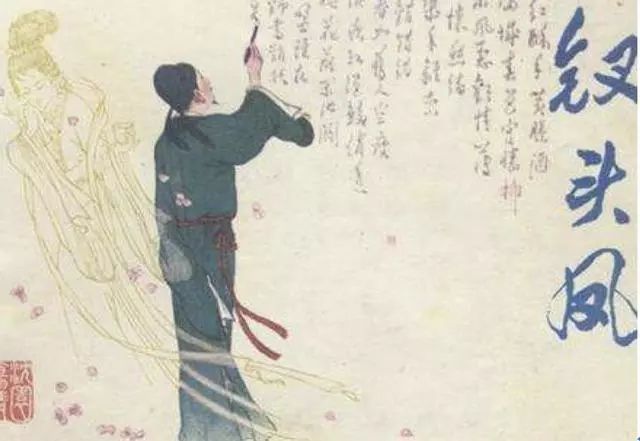 钗头凤
红酥手黄縢酒
城春色宫墙柳
风恶欢情薄
怀愁绪
年离索
错错
春如旧人空瘦
泪痕红浥鲛绡透
桃花落闲池阁
山盟虽在
锦书难托
莫